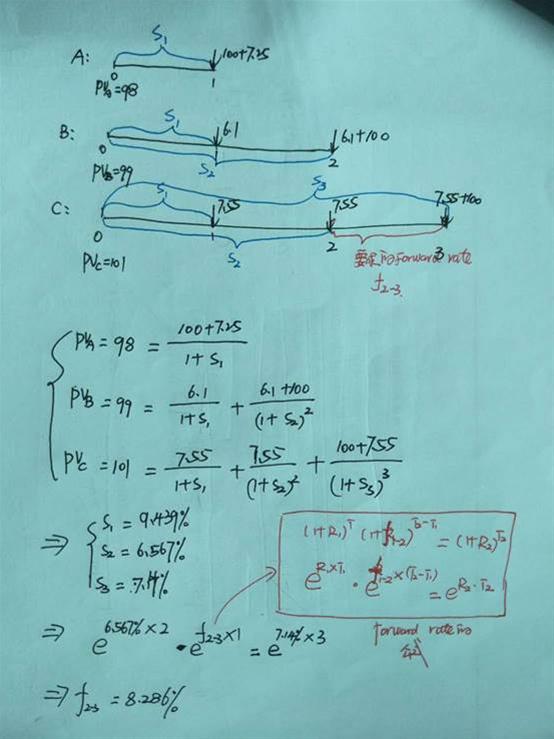 A: S₁ 100+7.25
0 1
PV_A=98
B: S₁ 6.1 6.1+100
0 S₂ 2
PV_B=99
S₃
C: S₁ 7.55 7.55 7.55+100
0 1 S₂ 2 3
PV_C=101
要求的forward rate
f₂₋₃
PV_A = 98 = (100+7.25)/(1+S₁)
PV_B = 99 = 6.1/(1+S₁) + (6.1+100)/(1+S₂)²
PV_C = 101 = 7.55/(1+S₁) + 7.55/(1+S₂)² + (100+7.55)/(1+S₃)³
⇒ S₁ = 9.439%
S₂ = 6.567%
S₃ = 7.14%
(1+R₁)^T₁ (1+f₁₋₂)^(T₂-T₁) = (1+R₂)^T₂
e^(R₁×T₁) · e^(f₁₋₂×(T₂-T₁)) = e^(R₂·T₂)
forward rate的
⇒ e^(6.567%×2) · e^(f₂₋₃×1) = e^(7.14%×3)
⇒ f₂₋₃ = 8.286%